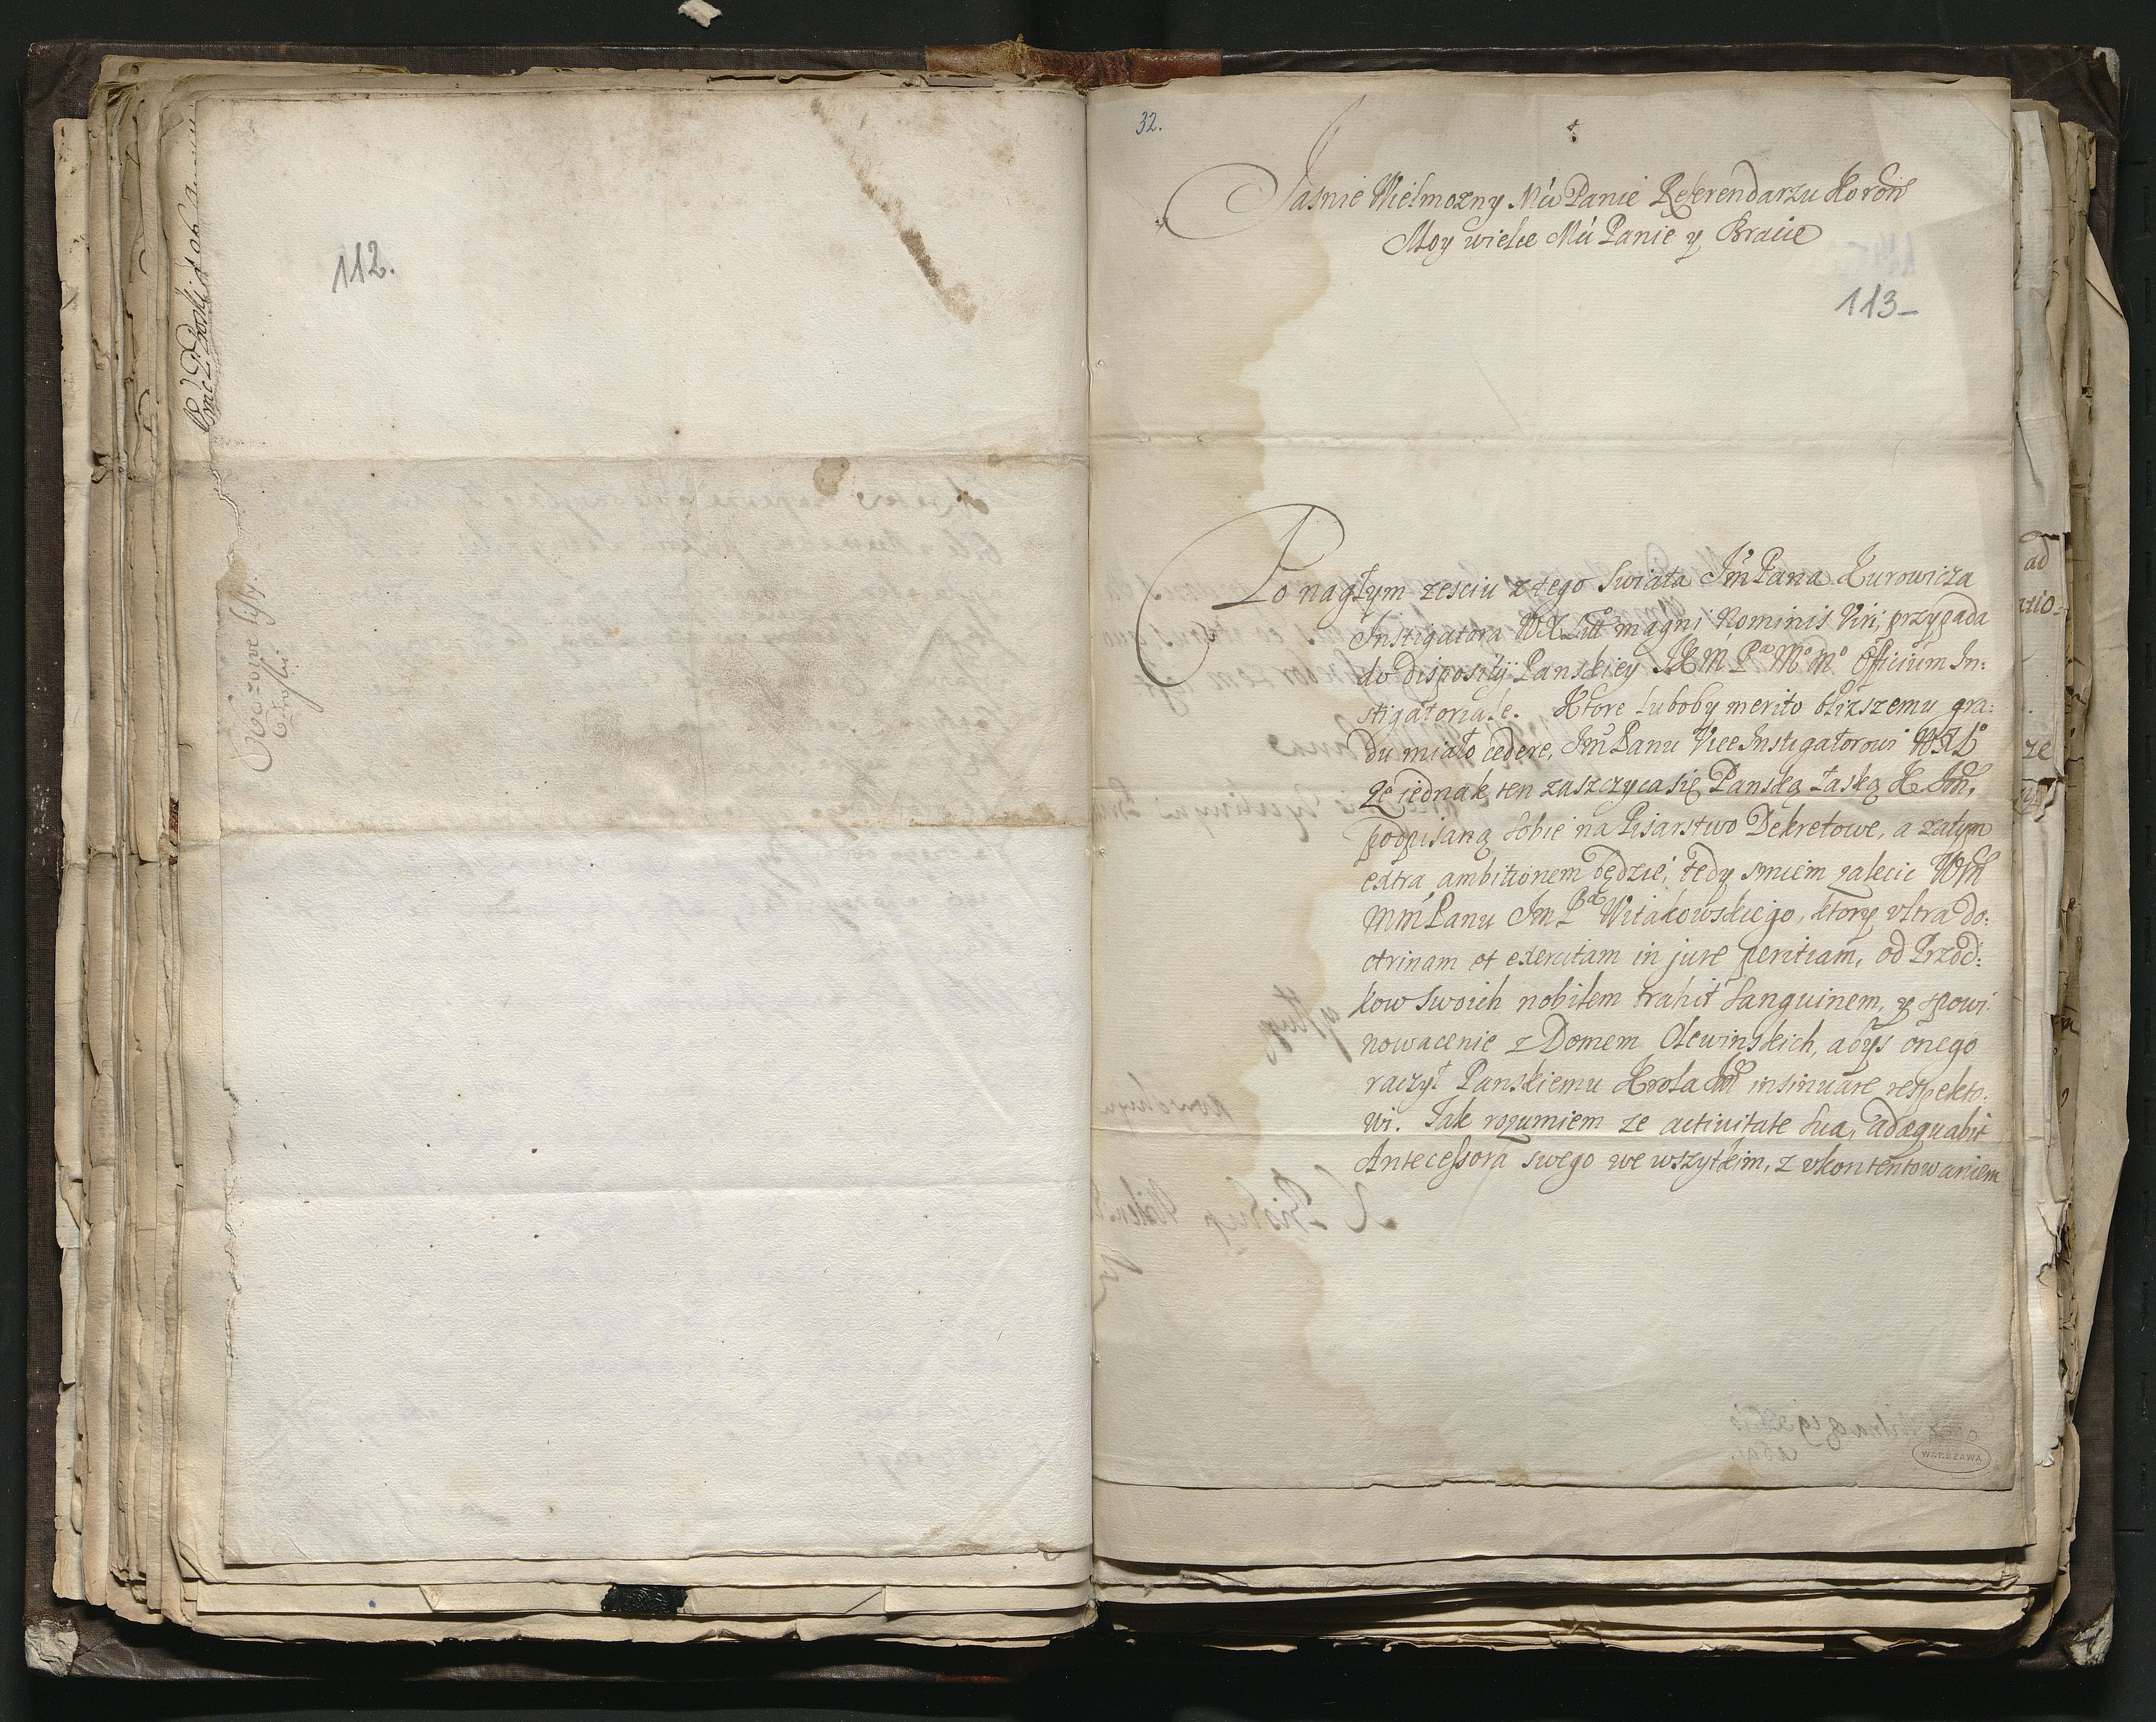 112.
Rożowe listy.
32.
Jasnie Wielmozny Mći Panie Referendarzu Koron̄
Moy wielce Mći Panie y Bracie
113–
Po nagłym zesciu z tego Swiata Jm̄ Pana Kurowicza
Instigatora WXLitt magni Nominis Viri, przypada
do disposityi Panskiey JKM Pa Mo Mo Officium In:
stigatoriale. Ktore luboby merito blizszemu gra:
du miało cedere, Jm̄ Panu Vice Instigatorowi WXL
Ze iednak ten zaszczyca się Panską łaską K Jm̄,
podpisaną sobie na Pisarstwo Dekretowe, a zatym
extra ambitionem będzie; tedy smiem zalecic Wm̄
Mm̄ Panu Jm Pa Witakowskiego, ktory vltra do:
ctrinam et exercitam in jure peritiam, od Przod:
kow Swoich nobilem trahit Sanguinem, y spowi
nowacenie z Domem Olewinskich, abys onego
raczył Panskiemu Krola Jm̄ insinuare respekto:
wi. Tak rozumiem ze activitate sua, adæquabit
Antecessora swego we wszytkim, z vkontentowaniem
ad
ze
WARSZAWA